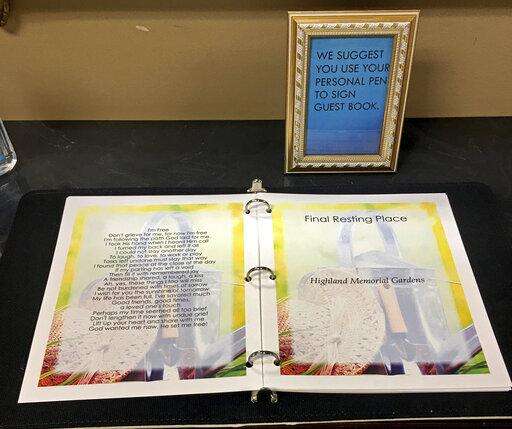 WE SUGGEST
YOU USE YOUR
PERSONAL PEN
TO SIGN
GUEST BOOK.
I'm Free
Don't grieve for me, for now I'm free
I'm following the path God laid for me.
I took His hand when I heard Him call
I turned my back and left it all
I could not stay another day
To laugh, to love, to work or play
Tasks left undone must stay that way
I found that peace at the close of the day
If my parting has left a void
Then fill it with remembered joy
A friendship shared, a laugh, a kiss
Ah, yes, these things I too will miss.
Be not burdened with times of sorrow
I wish for you the sunshine of tomorrow
My life has been full, I've savored much
Good friends, good times,
a loved one's touch.
Perhaps my time seemed all too brief
Don't lengthen it now with undue grief
Lift up your heart and share with me
God wanted me now, He set me free!
Final Resting Place
Highland Memorial Gardens